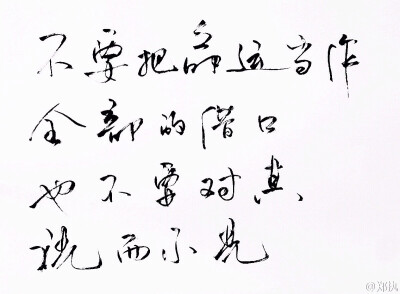 不要把命运当作
全部的借口
也不要对真
视而不见
@郑执